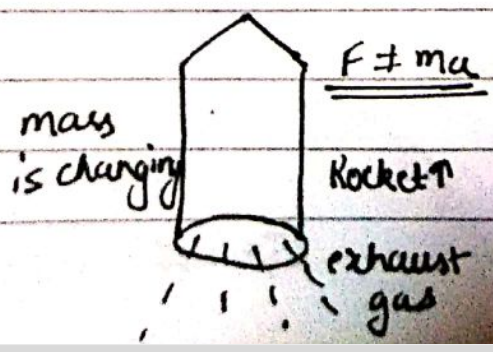 F ≠ ma
mass
is changing
Rocket↑
exhaust
gas